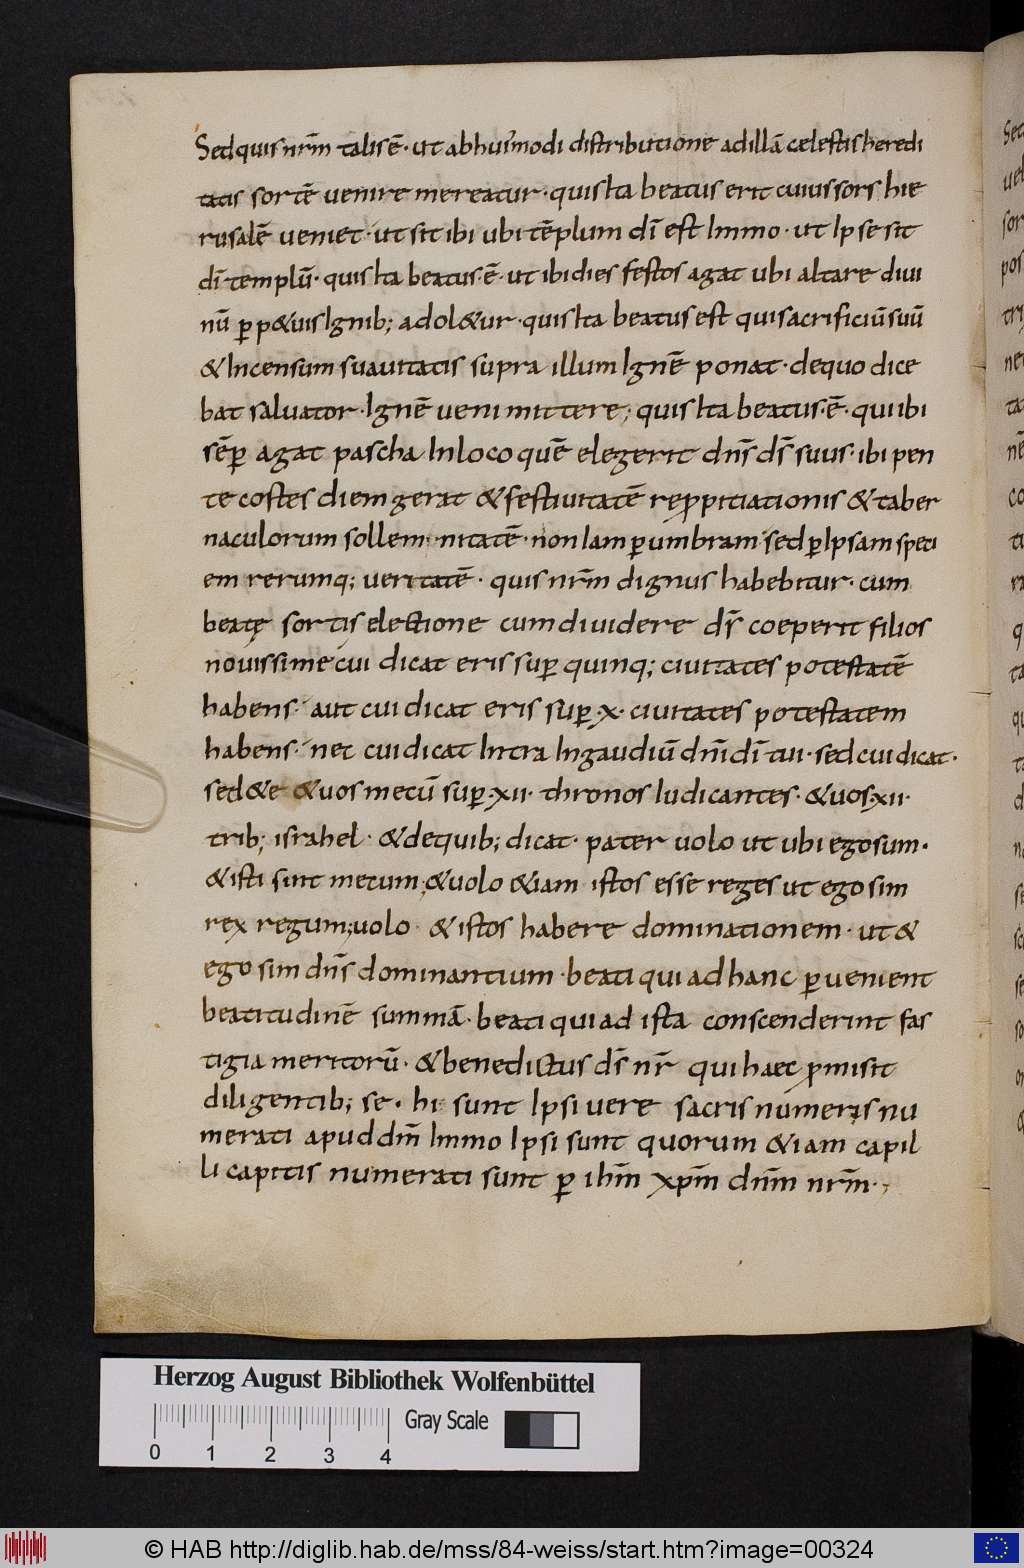 Sed quis nr̄m talis ē· ut ab huismodi distributione ad illā celestis heredi
tatis sortē venire mereatur· quis Ita beatus erit cuius sors hie
rusalē veniet· ut sit ibi ubi tēplum dī est Immo· ut Ipse sit
dī templū· quis Ita beatus ē· ut ibi dies festos agat ubi altare diui
nū ꝑ p&uis Ignib; adol&ur· quis Ita beatus est qui sacrificiū suū
& Incensum suauitatis supra illum Ignē ponat· de quo dice
bat saluator· Ignē ueni mittere; quis Ita beatus· ē· qui ibi
sēꝑ agat pascha In loco quē elegerit dn̄s ds̄ suus· ibi pen
te costes diem gerat & festiuitatē reꝓpitiationis & taber
naculorum sollem nitatē· non Iam ꝑ umbram sed ꝑ Ipsam speci
em rerumq; ueritatē· quis nr̄m dignus habebitur· cum
beatę sortis electione cum diuidere ds̄ coeperit filios
nouissime cui dicat eris suꝑ quinq; ciuitates potestatē
habens· aut cui dicat eris suꝑ·x· ciuitates potestatem
habens· nec cui dicat Intra In gaudiū dn̄i dī tui· sed cui dicat·
sed&e & uos mecū suꝑ·xii· thronos Iudicantes· & uos·xii·
trib; israhel· & de quib; dicat· pater uolo ut ubi ego sum·
& isti sint mecum; & uolo &iam istos esse reges ut ego sim
rex regum; uolo & istos habere dominationem· ut &
ego sim dn̄s dominantium· beati qui ad hanc ꝑuenient
beatitudinē summā· beati qui ad ista conscenderint fas
tigia meritorū· & benedictus ds̄ nr̄ qui haec ꝓmisit
diligentib; se· hi sunt Ipsi uere sacris numeris nu
merati apud dm̄ Immo Ipsi sunt quorum &iam capil
li capitis numerati sunt ꝑ ihm̄ xpm̄ dnm̄ nrm̄·,
Herzog August Bibliothek Wolfenbüttel
Gray Scale
0 1 2 3 4
© HAB http://diglib.hab.de/mss/84-weiss/start.htm?image=00324